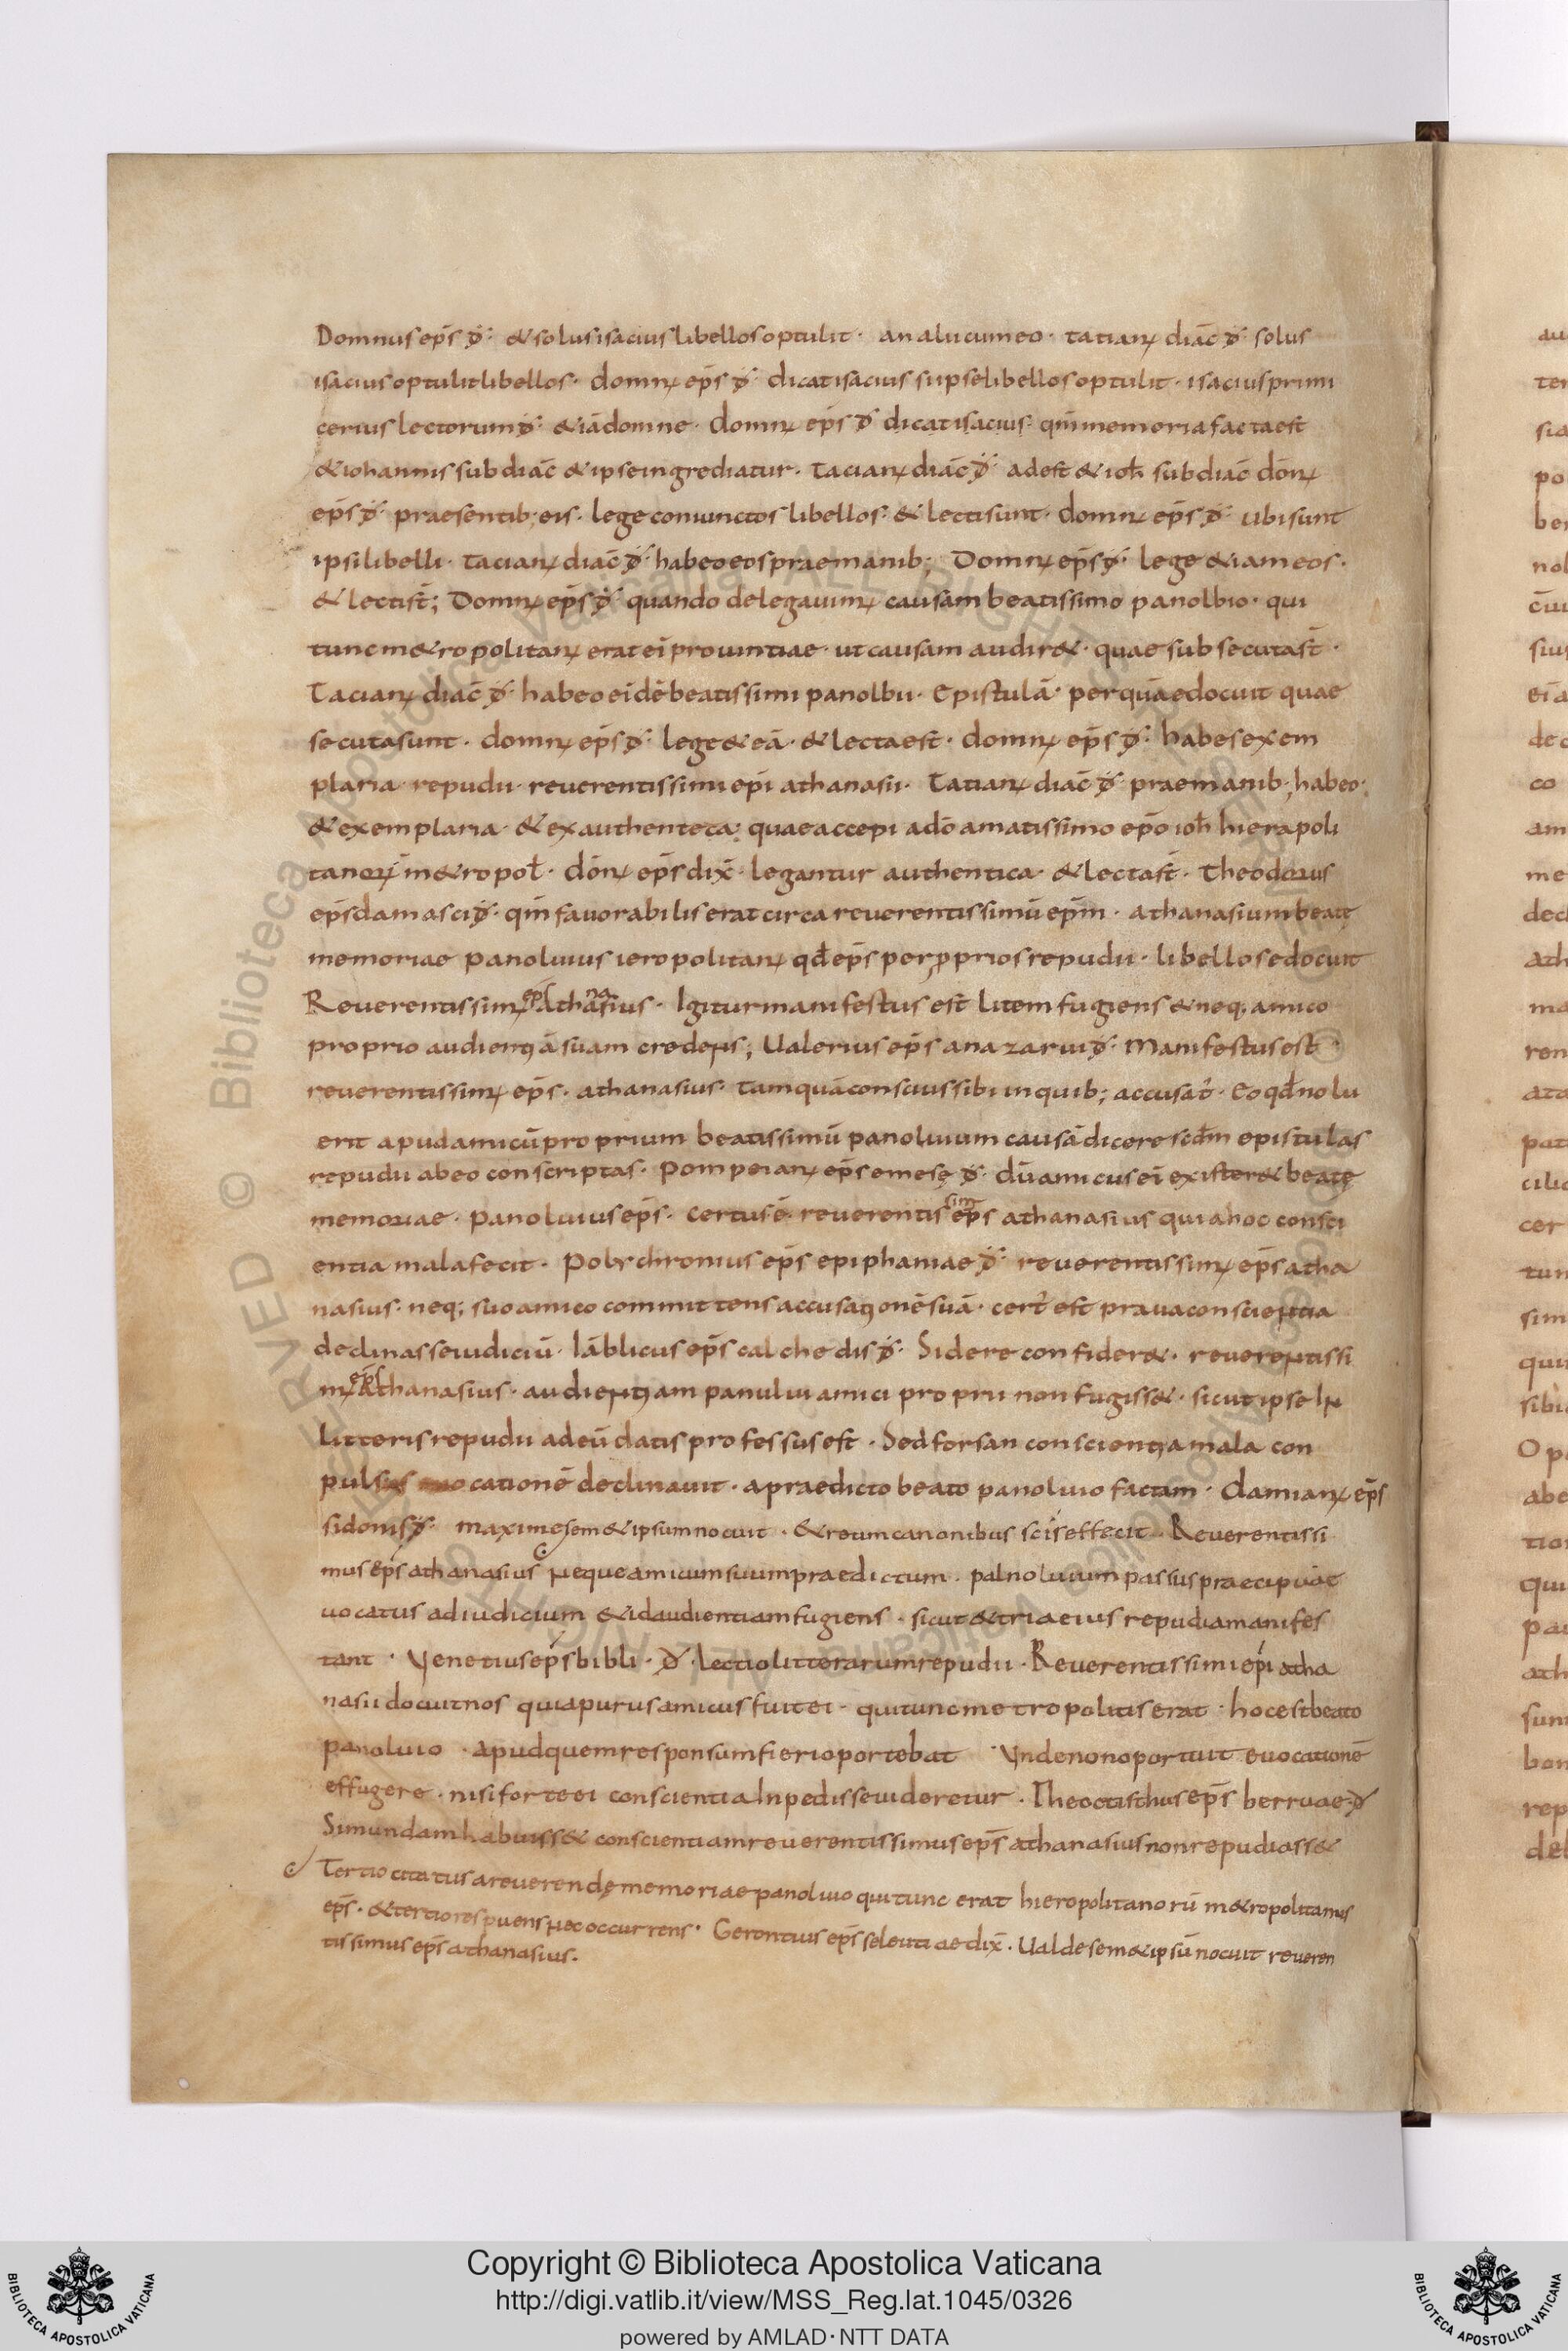 Domnus ep̄s đ· & solus isacius libellos optulit · an alii cum eo · tatianꝰ diāc đ· solus
isacius optulit libellos · domnꝰ ep̄s đ· dicat isacius si ipse libellos optulit · isacius primi
cerius lectorum đ· & iā domne · domnꝰ ep̄s đ dicat isacius · qm̄ memoria facta est
& iohannis subdiāc & ipse ingrediatur · tacianꝰ diāc đ· adest & ioh̄ subdiāc dōnꝰ
ep̄s đ· praesentib; eis · lege coniunctos libellos · & lecti sunt · domnꝰ ep̄s đ· ubi sunt
ipsi libelli · tacianꝰ diāc đ· habeo eos prae manib; Domnꝰ ep̄s đ· lege & iam eos ·
& lecti s̄t; Domnꝰ ep̄s đ· quando delegauimꝰ causam beatissimo panolbio · qui
tunc m&ropolitanꝰ erat ei prouintiae · ut causam audir& · quae subsecuta s̄t ·
Tacianꝰ diāc đ· habeo eidē beatissimi panolbii · Epistulā · per quā edocuit quae
secuta sunt · domnꝰ ep̄s đ· lege & eā · & lecta est · domnꝰ ep̄s đ· habes exem
plaria · repudii · reuerentissimi ep̄i athanasii · Tatianꝰ diāc đ· prae manib; habeo ·
& exemplaria · & ex authenteca · quae accepi a dō amatissimo ep̄o ioh̄ hierapoli
tanoꝝ m&ropol̄ · dōnꝰ ep̄s dix̄ · legantur authentica · & lecta s̄t · theodorus
ep̄s damasci đ· qm̄ fauorabilis erat circa reuerentissimū ep̄m · athanasium beatę
memoriae panoluius ieropolitanꝰ qđ ep̄s per ꝓprios repudii · libellos edocuit
Reuerentissimꝰ ep̄s athanasius · Igitur manifestus est litem fugiens & neq; amico
proprio audientiā suam credens; Ualerius ep̄s anazarui đ· manifestus est ·
reuerentissimꝰ ep̄s · athanasius · tamquā conscius sibi in quib; accusat̄ · Eo qđ nolu
erit apud amicū proprium beatissimū panoluium causā dicere scdm̄ epistulas
repudii ab eo conscriptas · pompeianꝰ ep̄s emesę đ· dū amicus ei exister& beatę
memoriae · panoluius ep̄s · certus ē · reuerentissim ep̄s athanasius qui a hoc consci
entia mala fecit · Polychronius ep̄s epiphaniae đ· reuerentissimꝰ ep̄s atha
nasius · neq; suo amico committens accusationē suā · cert̄ est praua conscientia
declinasse iudiciū · Iāblicus ep̄s calchedis đ· Si dere confider& · reuerentissi
mꝰ ep̄s athanasius · audientiam panuluii amici proprii non fugiss& · sicut ipse In
litteris repudii ad eū datis professus est · Sed forsan conscientia mala con
pulsus euocationē declinauit · a praedicto beato panoluio factam · damianꝰ ep̄s
sidonis đ· maxime sem&ipsum nocuit · & reum canonibus sc̄is effecit · Reuerentissi
mus ep̄s athanasius neque amicum suum praedictum · palnoluium passus praecipuae
uocatus ad iudicium & id audientiam fugiens · sicut & tria eius repudia manifes
tant · Venetius ep̄s bibli · đ · lectio litterarum repudii · Reuerentissimi ep̄i atha
nasii docuit nos quia purus amicus fuit ei · qui tunc metropolitis erat · hoc est beato
panoluio · apud quem responsum fieri oportebat Vnde non oportuit euocationē
effugere · nisi forte ei conscientia Inpedisse uideretur · Theoctisthus ep̄s berruae · đ
Si mundam habuiss& conscientiam reuerentissimus ep̄s athanasius non repudiass&
Tertio citatus a reuerendę memoriae panoluio qui tunc erat hieropolitanorū m&ropolitanus
ep̄s · & tertio respuens nec occurrens · Gerontius ep̄s seleutiae dix̄ · Ualde sem&ipsū nocuit reueren
tissimus ep̄s athanasius ·
Copyright © Biblioteca Apostolica Vaticana
http://digi.vatlib.it/view/MSS_Reg.lat.1045/0326
powered by AMLAD·NTT DATA